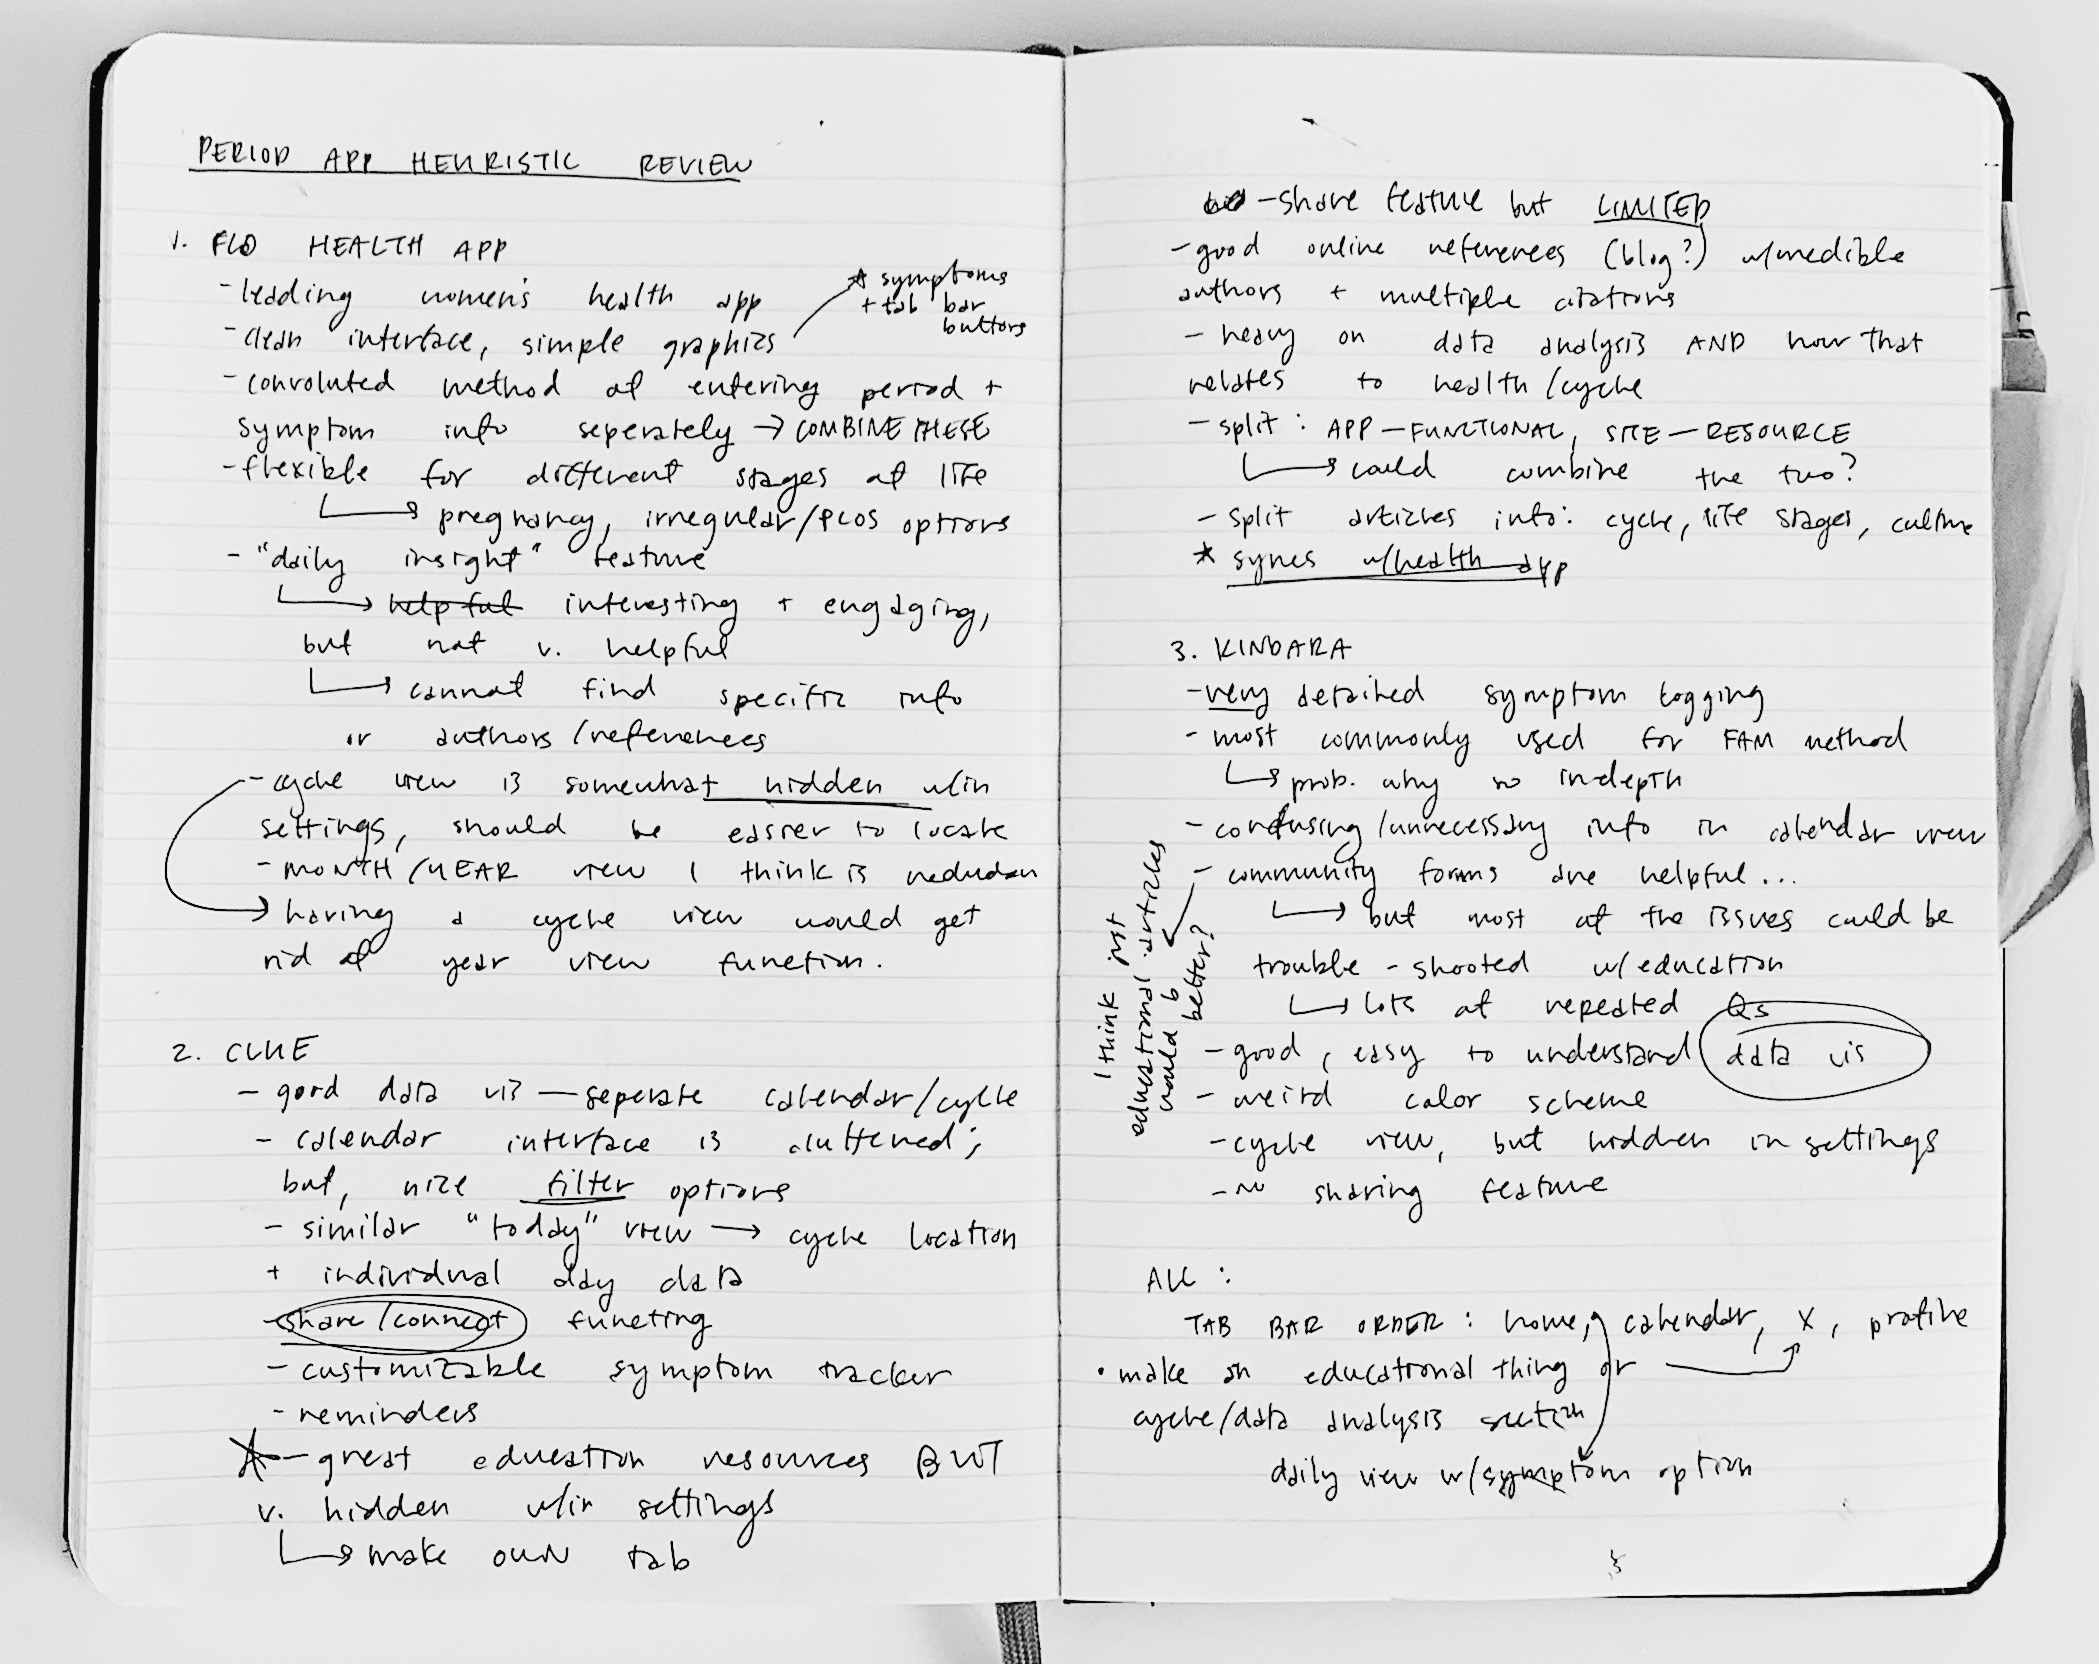 PERIOD APP HEURISTIC REVIEW
1. FLO HEALTH APP
- leading women's health app
- clean interface, simple graphics
* symptoms
+ tab bar
buttons
- convoluted method of entering period +
symptom info seperately → COMBINE THESE
- flexible for different stages of life
↳ pregnancy, irregular/PCOS options
- "daily insight" feature
↳ helpful interesting + engaging,
but not v. helpful
↳ cannot find specific info
or authors/references
- cycle view is somewhat hidden w/in
settings, should be easier to locate
- MONTH/YEAR view I think is redudan
→ having a cycle view would get
rid of year view function.
2. CLUE
- good data vis — seperate calendar/cycle
- calendar interface is cluttered;
but, nice filter options
- similar "today" view → cycle location
+ individual day data
- share/connect functing
- customizable symptom tracker
- reminders
* - great education resources BUT
v. hidden w/in settings
↳ make own tab
- share feature but LIMITED
- good online references (blog?) w/credible
authors + multiple citations
- heavy on data analysis AND how that
relates to health/cycle
- split: APP - FUNCTIONAL, SITE - RESOURCE
↳ could combine the two?
- split articles into: cycle, life stages, culture
* syncs w/health app
3. KINDARA
- very detailed symptom logging
- most commonly used for FAM method
↳ prob. why so indepth
- confusing/unnecessary info in calendar view
- community forms are helpful...
↳ but most of the issues could be
trouble-shooted w/education
↳ lots of repeated Qs
I think just
educational articles
would b
better?
- good, easy to understand data vis
- weird color scheme
- cycle view, but hidden in settings
- no sharing feature
ALL:
TAB BAR ORDER: home, calendar, X, profile
• make an educational thing or →
cycle/data analysis section
daily view w/symptom option